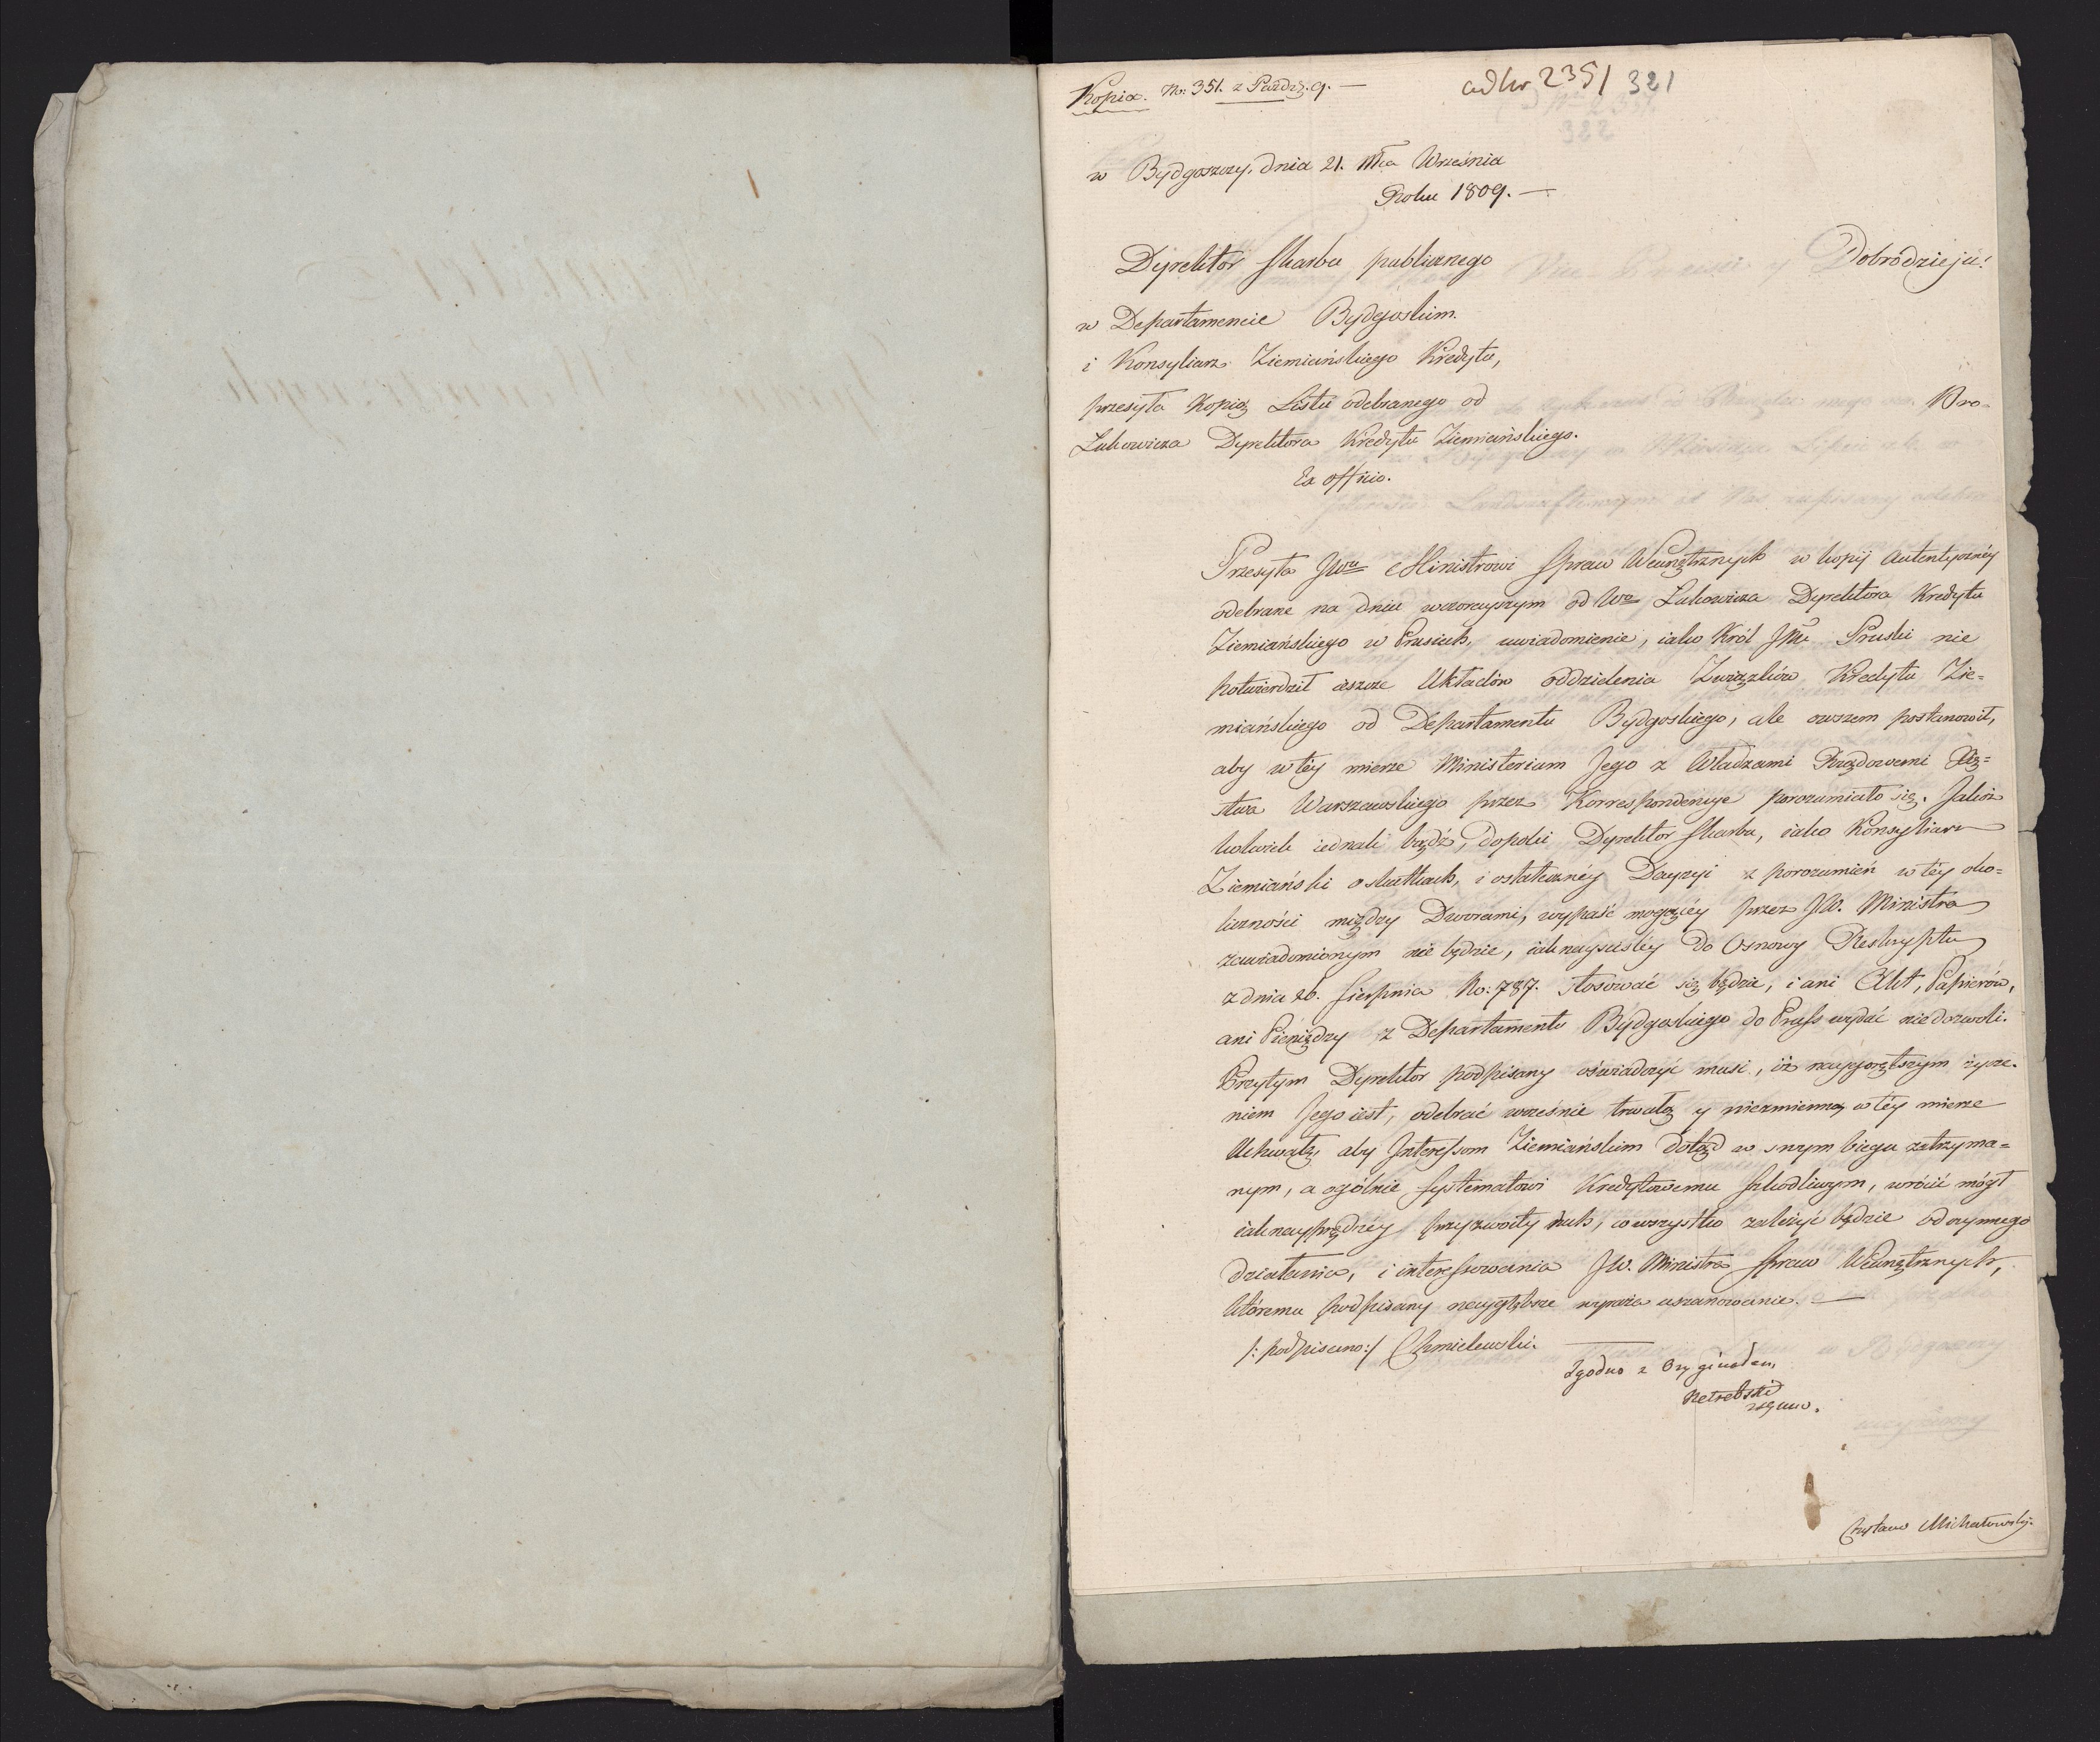 Kopia. No: 351. z Paźdz. 9. —
ad Nr 2351 321
322
w Bydgoszczy, dnia 21. Mca Września
Roku 1809. —
Dyrektor Skarbu publicznego
Dobrodzieju!
w Departamencie Bydgoskim.
i Konsyliarz Ziemiańskiego Kredytu,
przesyła Kopią Listu odebranego od
Łukowicza Dyrektora Kredytu Ziemiańskiego.
Ex officio.
Przesyła JWu Ministrowi Spraw Wewnętrznych w kopij autentycznéy
odebrane na dniu wczorayszym od Wo Łukowicza Dyrektora Kredytu
Ziemiańskiego w Prusiech, uwiadomienie, iako Król JMć Pruski nie
potwierdził ieszcze Układów oddzielenia Związków Kredytu Zie=
miańskiego od Departamentu Bydgoskiego, ale owszem postanowił,
aby w téy mierze Ministerium Jego z Władzami Rządowemi Xię=
stwa Warszawskiego przez Korrespondencye porozumiało się. Jakoż
kolwiek iednak bądź, dopóki Dyrektor Skarbu, iako Konsyliarz
Ziemiański o skutkach, i ostatecznéy Decyzyi z porozumień w téy oko=
liczności między Dworami, wypaść mogącéy przez JW. Ministra
zawiadomionym nie będzie, iak nayściśléy do Osnowy Reskryptu
z dnia 26. Sierpnia No: 787. stosować się będzie, i ani Akt, Papierów,
ani Pieniędzy z Departamentu Bydgoskiego do Pruss wydać nie dozwoli.
Przytym Dyrektor podpisany oświadczyć musi, iż naygorętszym życze-
niem Jego iest, odebrać wcześnie trwałą y niezmienną w téy mierze
Uchwałę, aby Interessom Ziemiańskim dotąd w swym biegu zatrzyma=
nym, a ogólnie systematowi Kredytowemu szkodliwym, wrócić mógł
iak nayprędzéy przyzwoity ruch, co wszystko zależyć będzie od czynnego
działania, i interessowania JW. Ministra Spraw Wewnętrznych,
któremu podpisany naygłębsze wyraża uszanowanie. —
/: podpisano:/ Chmielewski.
Zgodno z Oryginałem,
Czytano Michałowski.